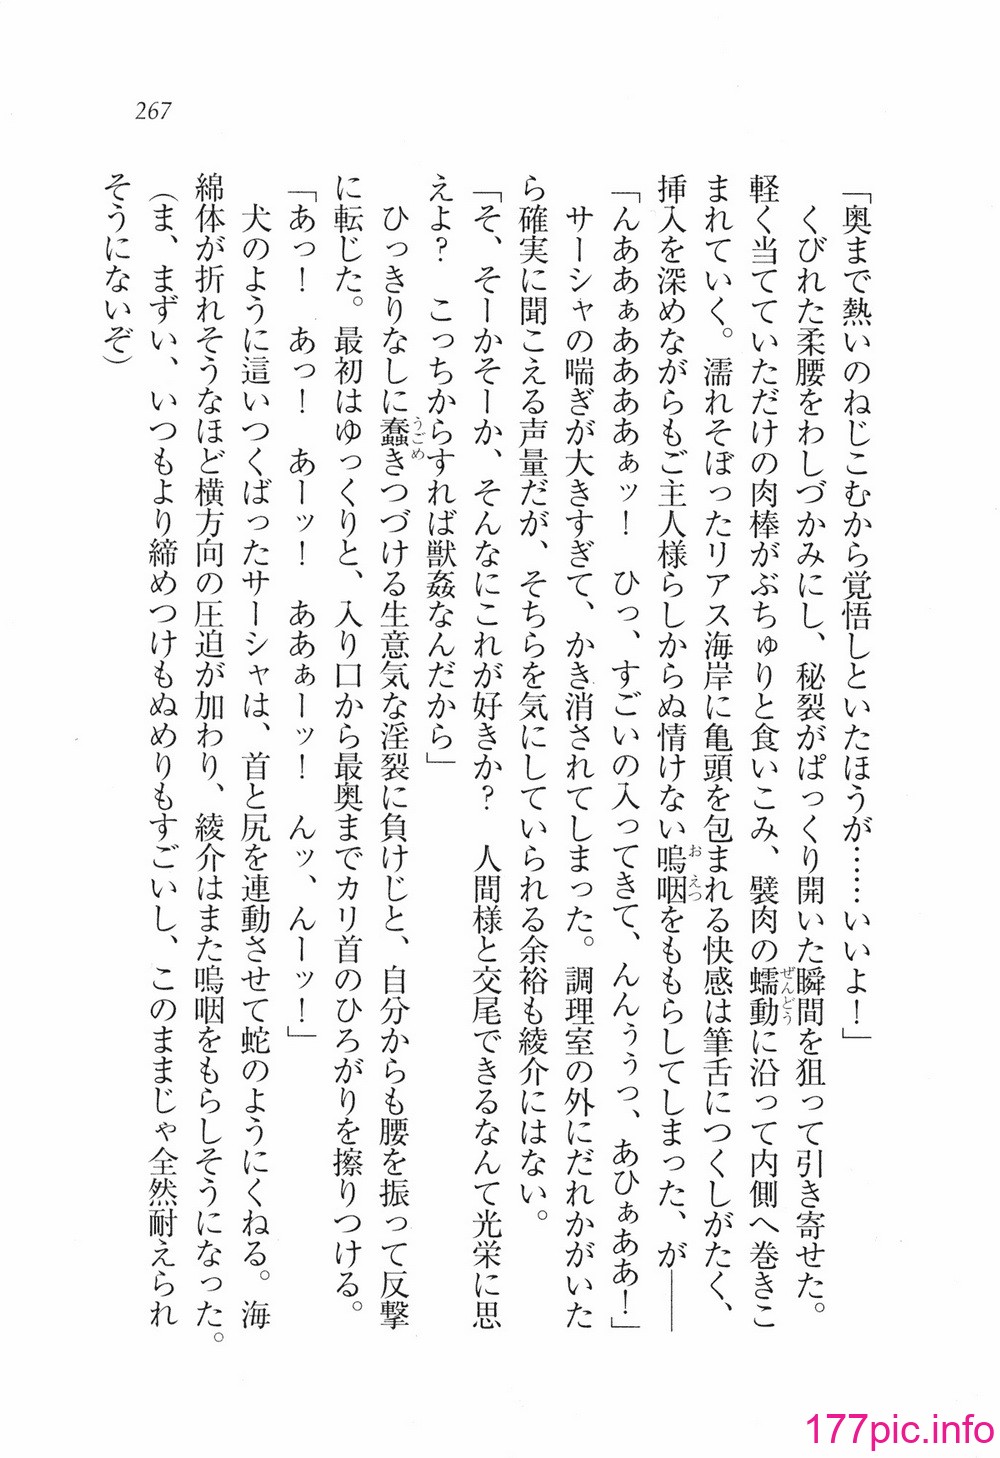 267
「奥まで熱いのねじこむから覚悟しといたほうが……いいよ！」
くびれた柔腰をわしづかみにし、秘裂がぱっくり開いた瞬間を狙って引き寄せた。
軽く当てていただけの肉棒がぶちゅりと食いこみ、襞肉の蠕動に沿って内側へ巻きこ
まれていく。濡れそぼったリアス海岸に亀頭を包まれる快感は筆舌につくしがたく、
挿入を深めながらもご主人様らしからぬ情けない嗚咽をももらしてしまった、が――
「んああぁああああぁッ！　ひっ、すごいの入ってきて、んんぅぅっ、あひぁああ！」
サーシャの喘ぎが大きすぎて、かき消されてしまった。調理室の外にだれかがいた
ら確実に聞こえる声量だが、そちらを気にしていられる余裕も綾介にはない。
「そ、そーかそーか、そんなにこれが好きか？　人間様と交尾できるなんて光栄に思
えよ？　こっちからすれば獣姦なんだから」
ひっきりなしに蠢きつづける生意気な淫裂に負けじと、自分からも腰を振って反撃
に転じた。最初はゆっくりと、入り口から最奥までカリ首のひろがりを擦りつける。
「あっ！　あっ！　あーッ！　ああぁーッ！　んッ、んーッ！」
犬のように這いつくばったサーシャは、首と尻を連動させて蛇のようにくねる。海
綿体が折れそうなほど横方向の圧迫が加わり、綾介はまた嗚咽をもらしそうになった。
（ま、まずい、いつもより締めつけもぬめりもすごいし、このままじゃ全然耐えられ
そうにないぞ）
177pic.info